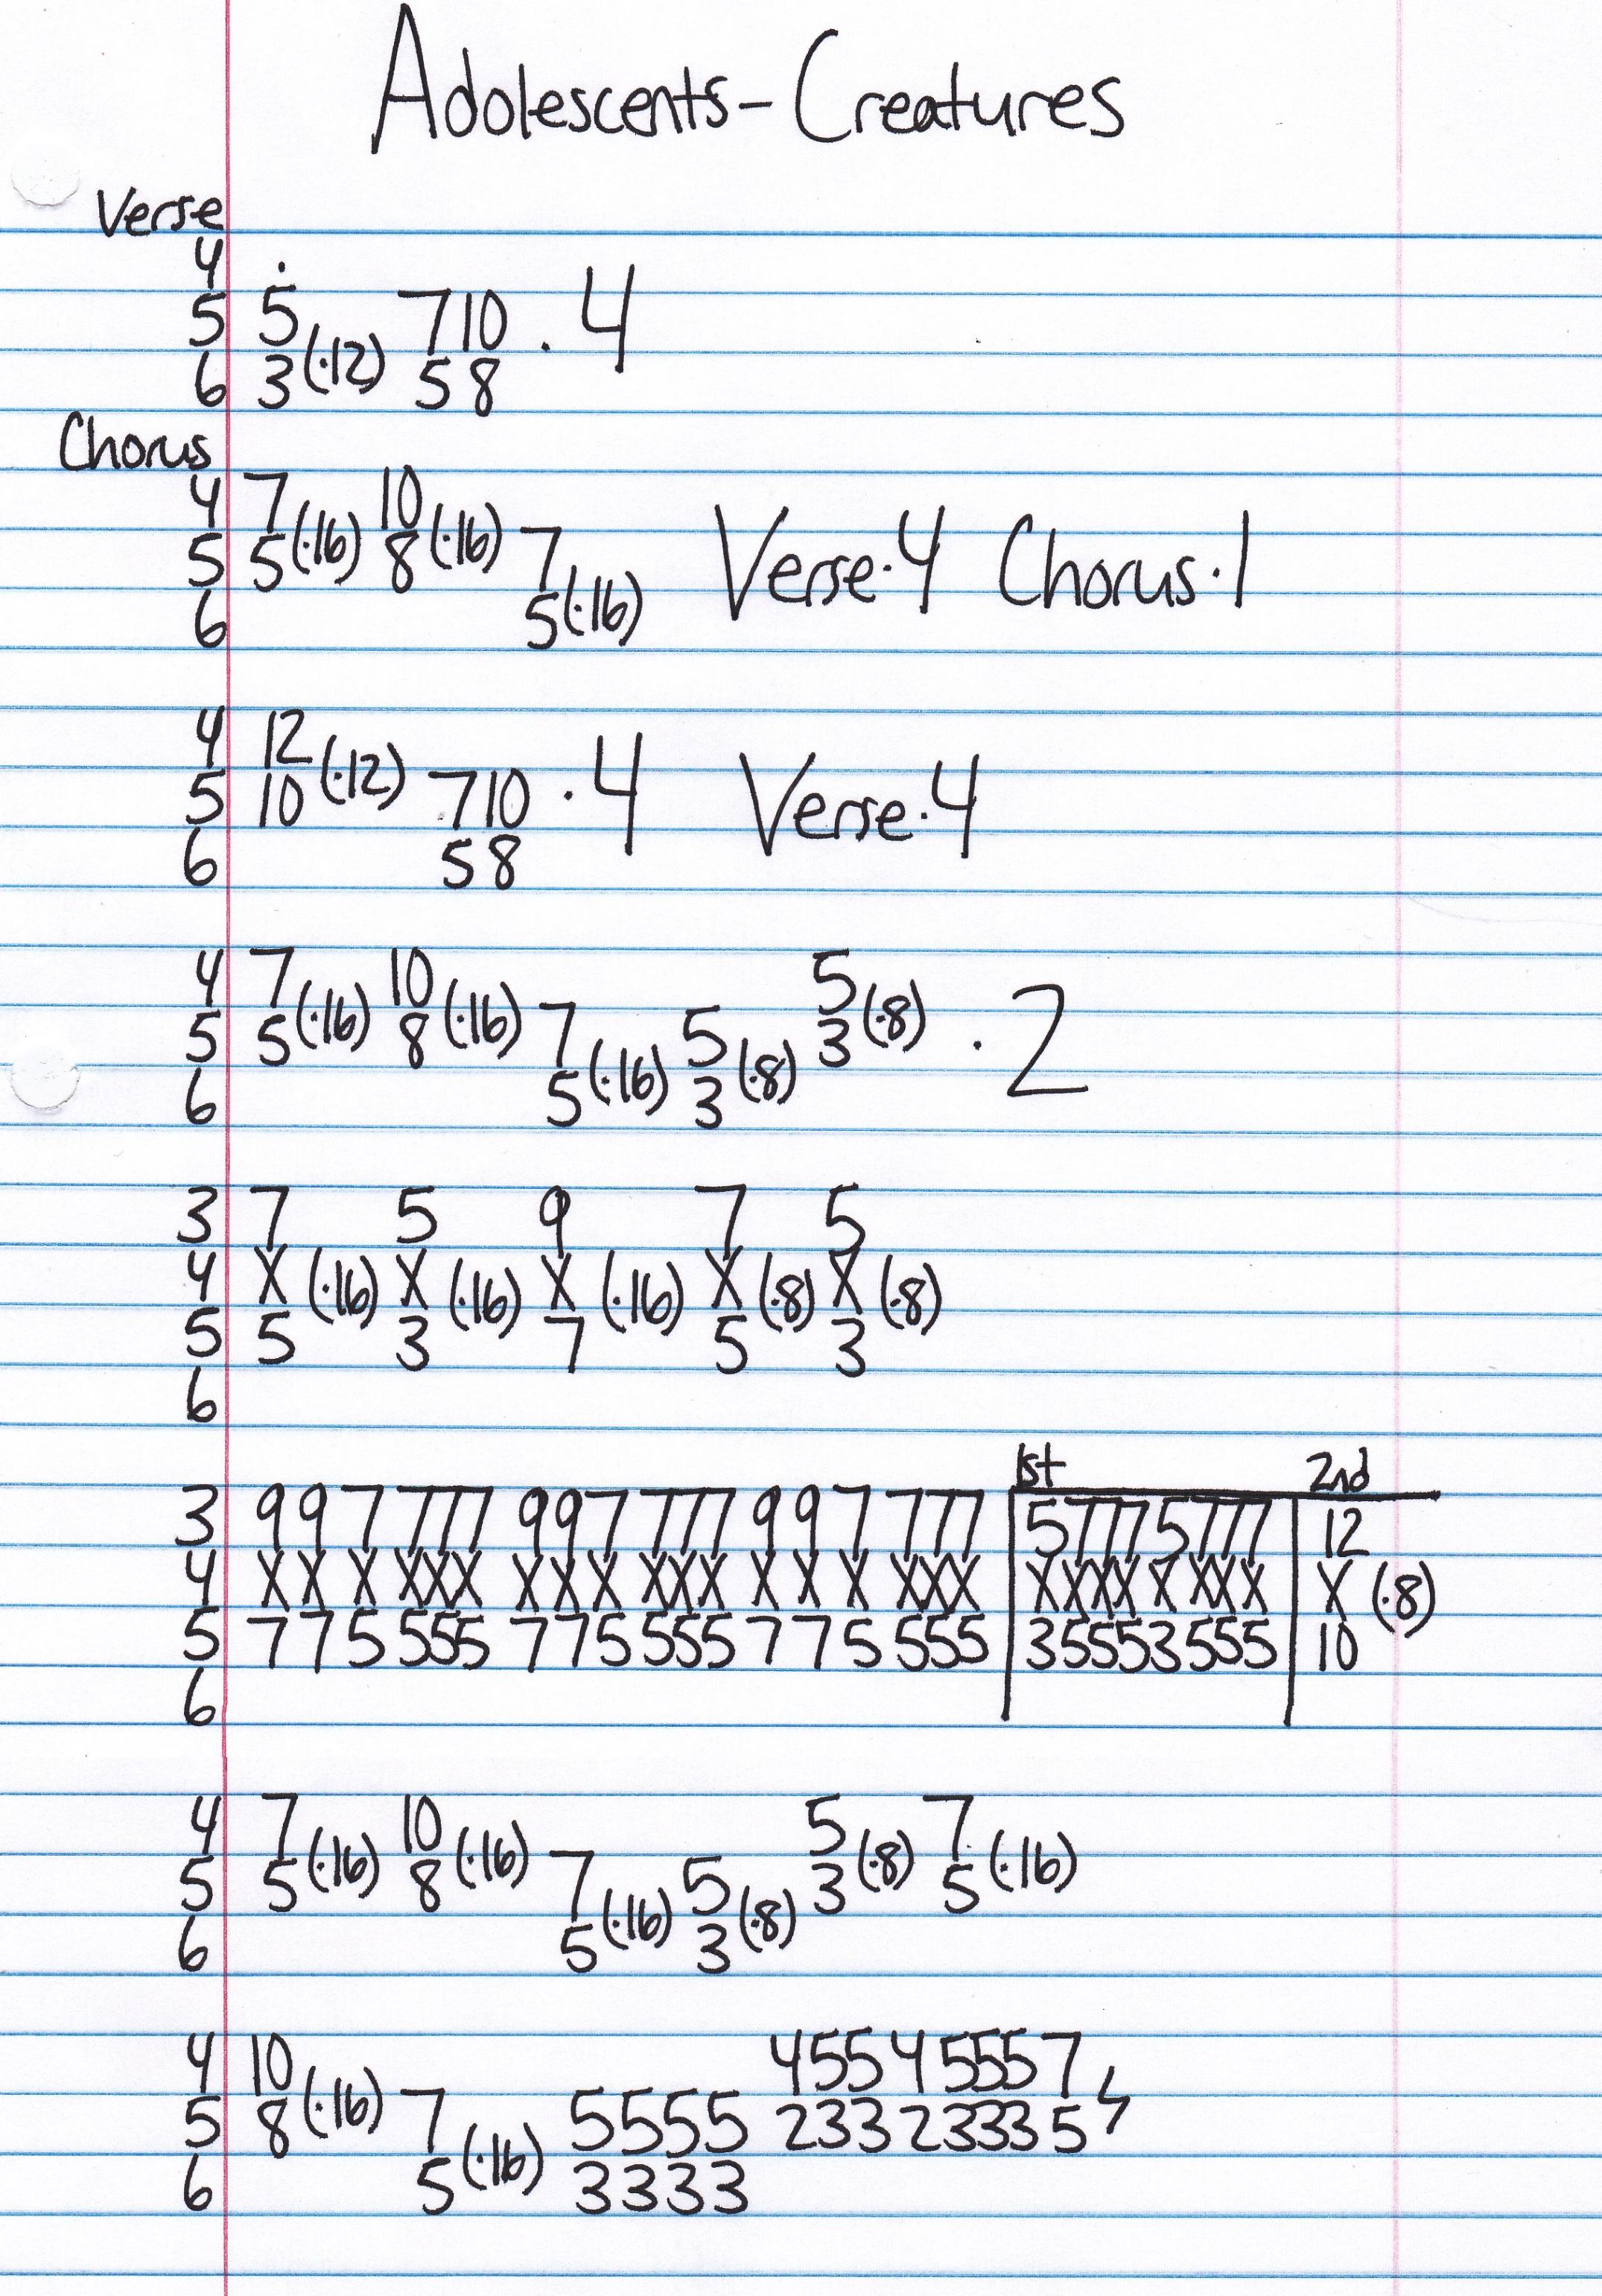 Adolescents - Creatures
Verse
4
5 5 7 10 · 4
6 3 (·12) 5 8
Chorus
4 7 10
5 5 (·16) 8 (·16) 7 Verse·4 Chorus·1
6 5 (·16)
4 12
5 10 (·12) 7 10 · 4 Verse·4
6 5 8
4 7 10 5
5 5 (·16) 8 (·16) 7 5 3 (·8) · 2
6 5 (·16) 3 (·8)
3 7 5 9 7 5
4 X (·16) X (·16) X (·16) X (·8) X (·8)
5 5 3 7 5 3
6
1st 2nd
3 9 9 7 7 7 7 9 9 7 7 7 7 9 9 7 7 7 7 5 7 7 7 5 7 7 7 12
4 X X X X X X X X X X X X X X X X X X X X X X X X X X X (·8)
5 7 7 5 5 5 5 7 7 5 5 5 5 7 7 5 5 5 5 3 5 5 5 3 5 5 5 10
6
4 7 10 5 7
5 5 (·16) 8 (·16) 7 5 3 (·8) 5 (·16)
6 5 (·16) 3 (·8)
4 10 4 5 5 4 5 5 5 7
5 8 (·16) 7 5 5 5 5 2 3 3 2 3 3 3 5
6 5 (·16) 3 3 3 3